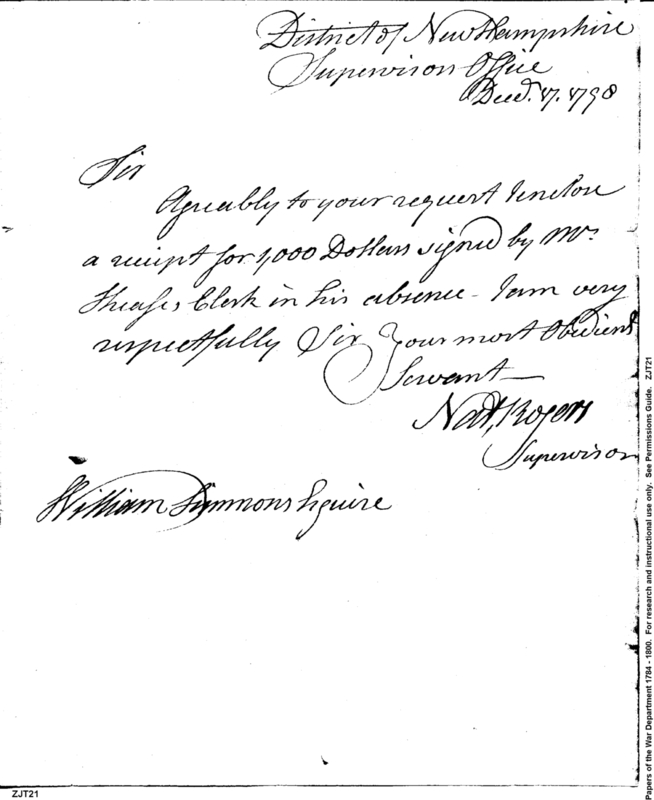 District of New Hampshire
Supervisors Office
Decr. 17. 1798
Sir
Agreably to your request I enclose
a receipt for 1,000 Dollars signed by Mr.
Sheafes Clerk in his absence - I am very
respectfully Sir Your most Obedient
Servant
Natl, Rogers
Supervisor
William Simmons Esquire
Papers of the War Department 1784 - 1800. For research and instructional use only. See Permissions Guide. ZJT21
ZJT21